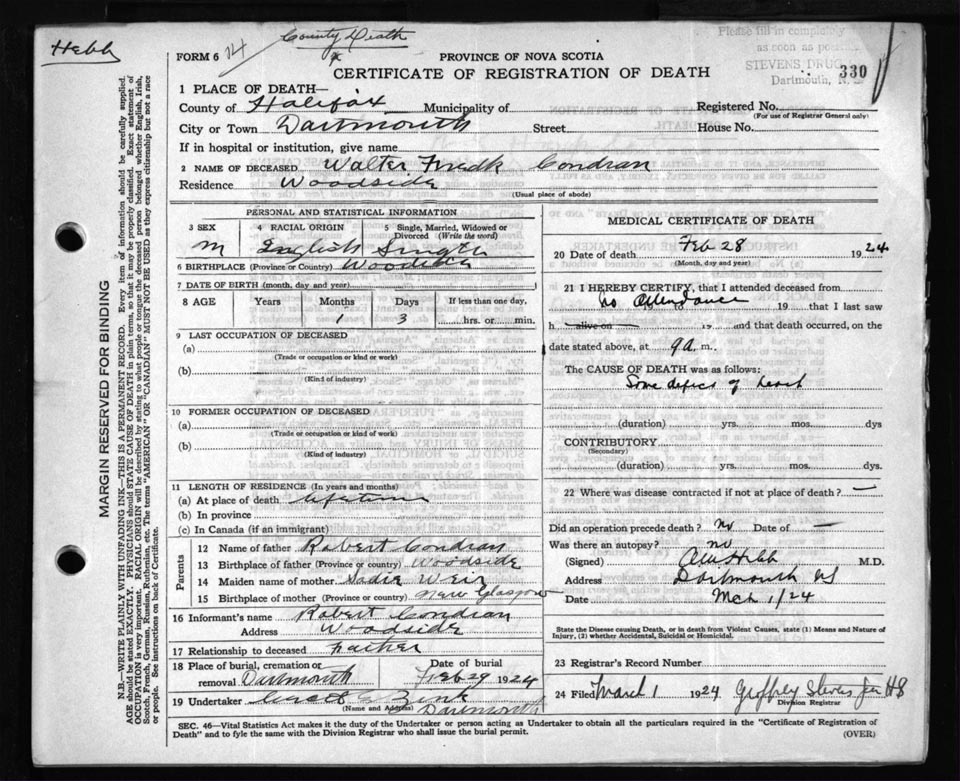 Hebb
14
County Death
Please fill in completely
as soon as
STEVENS DRUG
Dartmouth, N.S.
330
FORM 6
PROVINCE OF NOVA SCOTIA
CERTIFICATE OF REGISTRATION OF DEATH
1 PLACE OF DEATH—
County of Halifax Municipality of Registered No.
(For use of Registrar General only)
City or Town Dartmouth Street House No.
If in hospital or institution, give name
2 NAME OF DECEASED Walter Fredk Condran
Residence Woodside
(Usual place of abode)
PERSONAL AND STATISTICAL INFORMATION
3 SEX 4 RACIAL ORIGIN 5 Single, Married, Widowed or Divorced (Write the word)
M English Single
6 BIRTHPLACE (Province or Country) Woodside
7 DATE OF BIRTH (month, day and year)
8 AGE Years Months Days If less than one day,
1 3 hrs. or min.
9 LAST OCCUPATION OF DECEASED
(a)
(Trade or occupation or kind or work)
(b)
(Kind of industry)
10 FORMER OCCUPATION OF DECEASED
(a)
(Trade or occupation or kind of work)
(b)
(Kind of industry)
11 LENGTH OF RESIDENCE (In years and months)
(a) At place of death lifetime
(b) In province
(c) In Canada (if an immigrant)
Parents
12 Name of father Robert Condran
13 Birthplace of father (Province or Country) Woodside
14 Maiden name of mother Sadie Weir
15 Birthplace of mother (Province or country) New Glasgow
16 Informant's name Robert Condran
Address Woodside
17 Relationship to deceased Father
18 Place of burial, cremation or removal Dartmouth Date of burial Feb 29 1924
19 Undertaker Zink
(Name and Address) Dartmouth
MEDICAL CERTIFICATE OF DEATH
20 Date of death Feb 28 1924
(Month, day and year)
21 I HEREBY CERTIFY, that I attended deceased from
no attendance 19 to 19 that I last saw
h alive on 19 and that death occurred, on the
date stated above, at 9 a. m.
The CAUSE OF DEATH was as follows:
Some defect of heart
(duration) yrs. mos. dys
CONTRIBUTORY
(Secondary)
(duration) yrs. mos. dys.
22 Where was disease contracted if not at place of death? —
Did an operation precede death? no Date of —
Was there an autopsy? no
(Signed) Hebb M.D.
Address Dartmouth NS
Date Mch 1/24
State the Disease causing Death, or in death from Violent Causes, state (1) Means and Nature of
Injury, (2) whether Accidental, Suicidal or Homicidal.
23 Registrar's Record Number
24 Filed March 1 1924 Geoffrey Stevens
Division Registrar
SEC. 46—Vital Statistics Act makes it the duty of the Undertaker or person acting as Undertaker to obtain all the particulars required in the "Certificate of Registration of
Death" and to fyle the same with the Division Registrar who shall issue the burial permit.
(OVER)
MARGIN RESERVED FOR BINDING
N.B.—WRITE PLAINLY WITH UNFADING INK—THIS IS A PERMANENT RECORD. Every item of information should be carefully supplied.
AGE should be stated EXACTLY. PHYSICIANS should STATE CAUSE OF DEATH in plain terms, so that it may be properly classified. Exact statement of
OCCUPATION is very important. RACIAL ORIGIN will be described by stating to what people or tongue the deceased person belonged whether English, Irish,
Scotch, French, German, Russian, Ruthenian, etc. The terms "AMERICAN" OR "CANADIAN" MUST NOT BE USED as they express citizenship but not a race
or people. See instructions on back of Certificate.